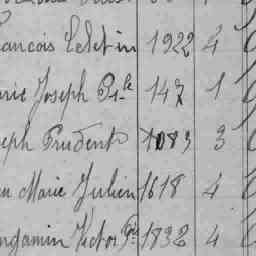 ancois Celestin 1922 4
arie Joseph Pr le 147 1
seph Prudent 1083 3
n Marie Julien 1618 4
njamin Victor 1832 4